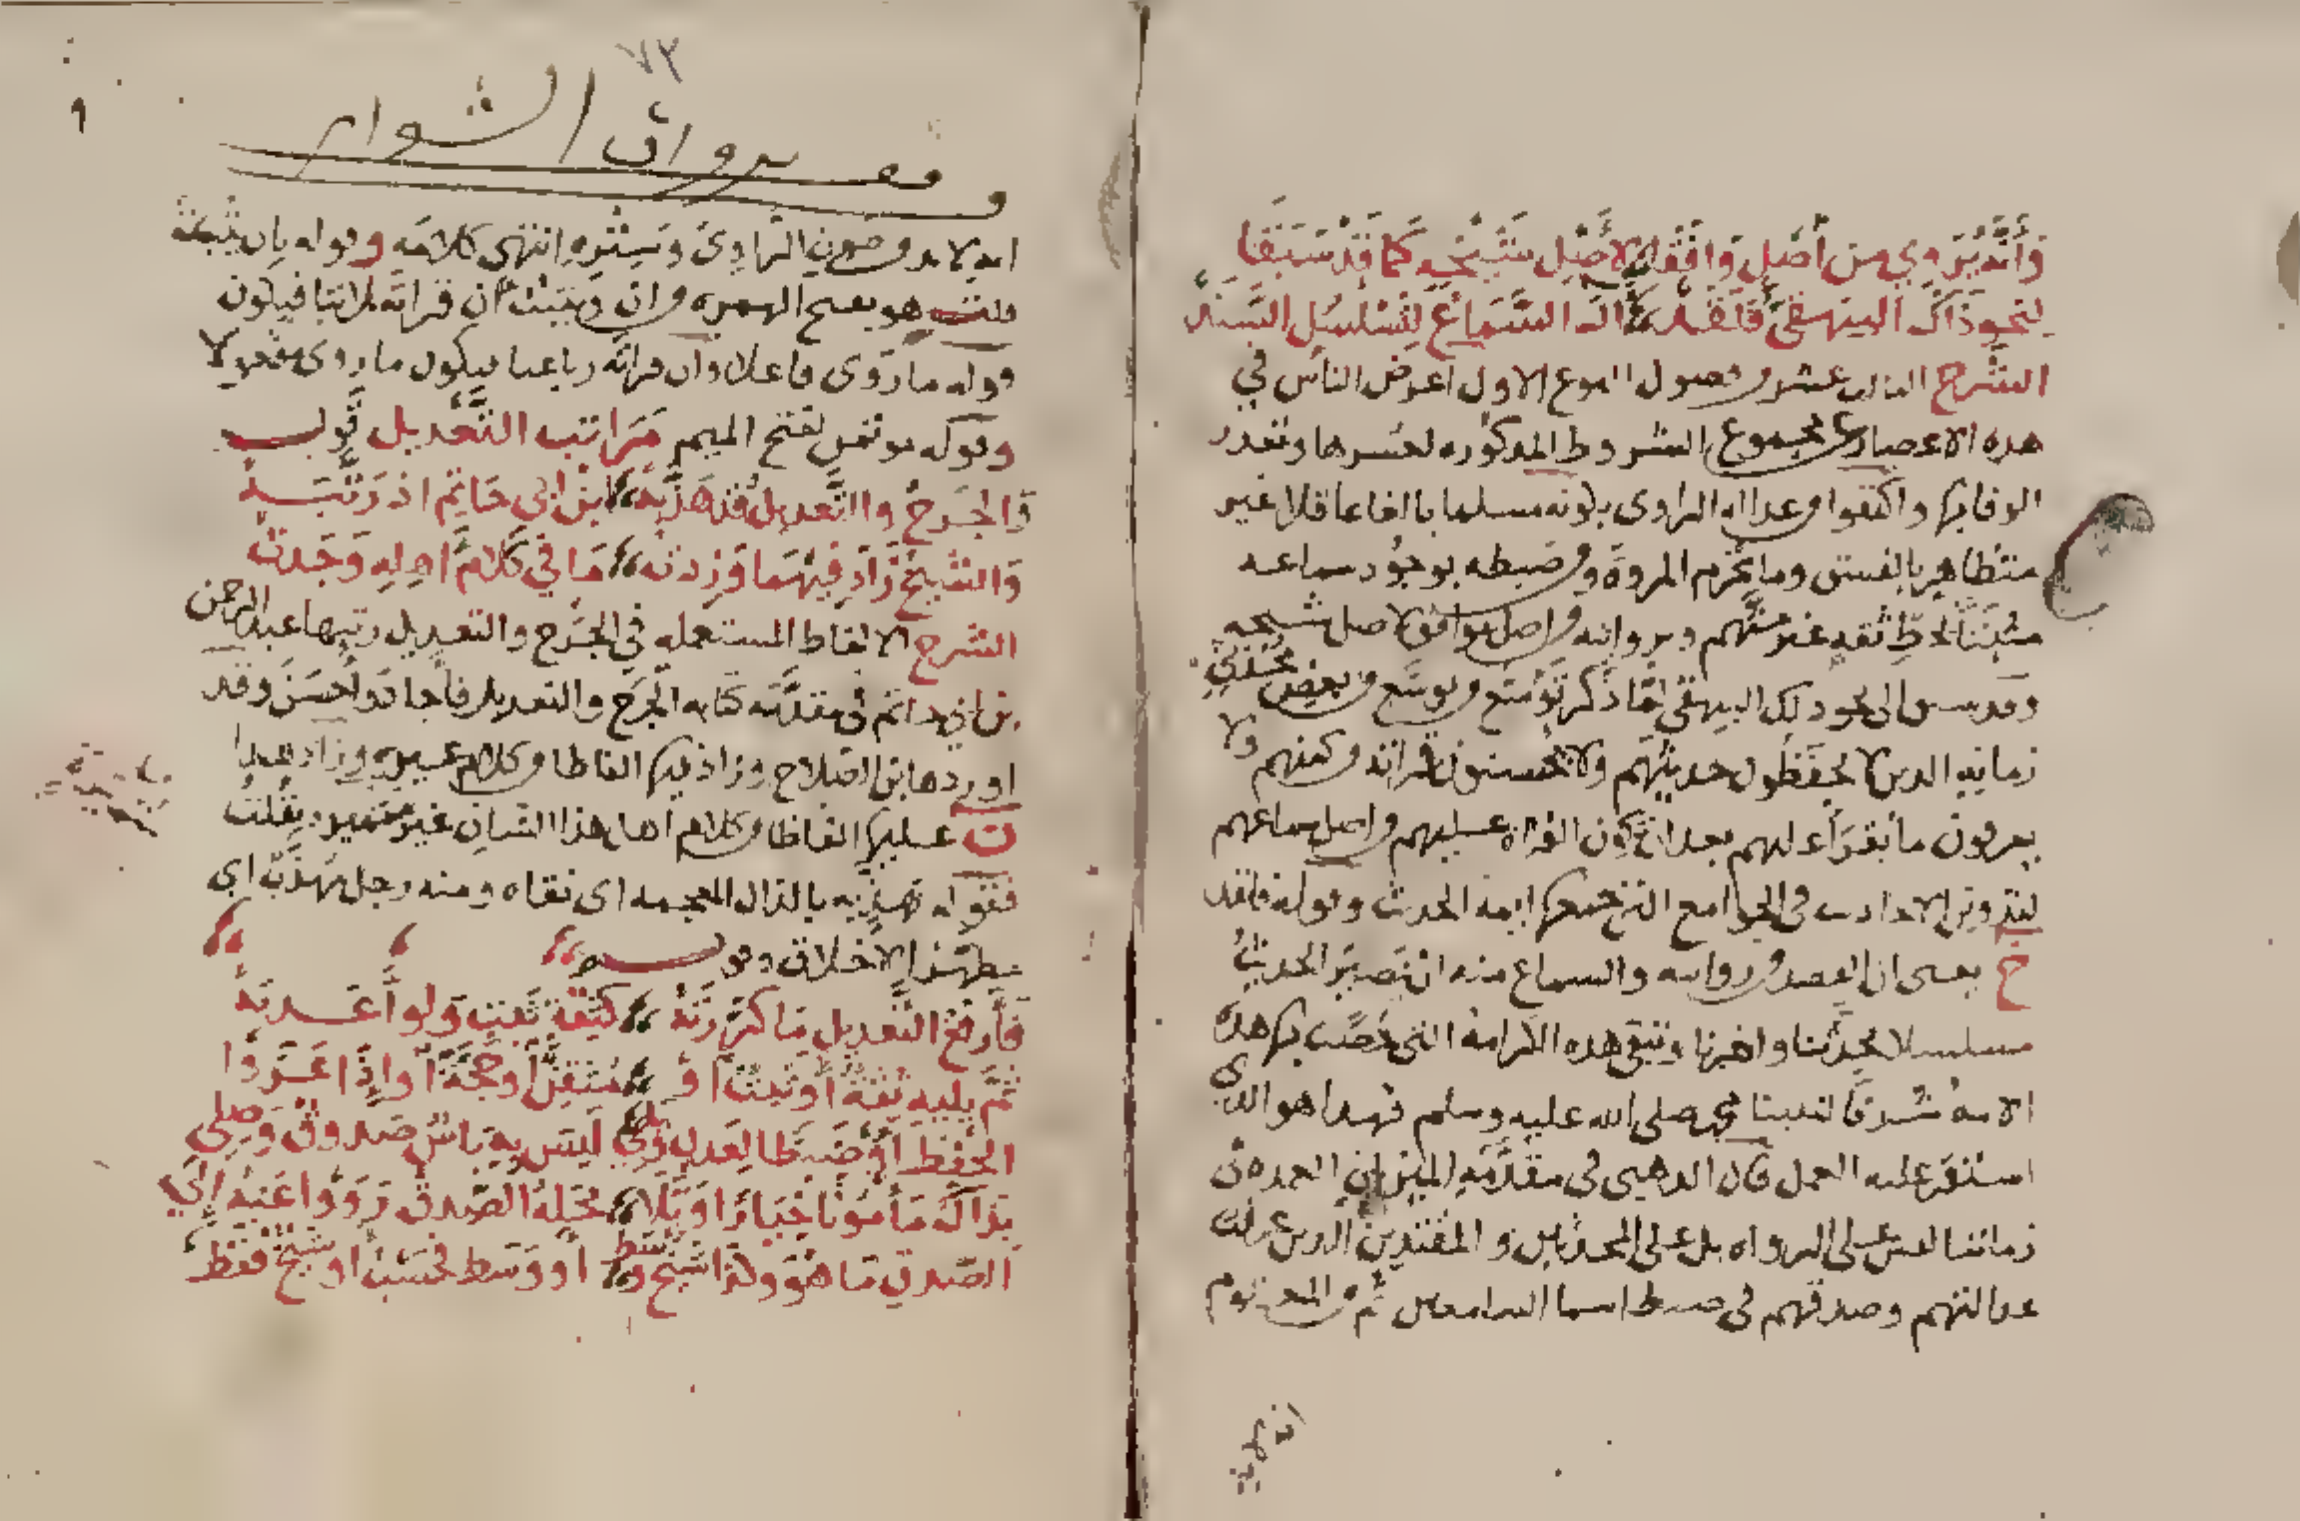 وَأَنَّهُ يَرْوِي مِن أَصْلٍ وَافَقَا لِأَصْلِ شَيْخِهِ كَمَا قَدْ سَبَقَا
لنحو ذاك البيهقي فلقد آل السماع لتسلسل السند
الشرح الثالث عشر من فصول النوع الاول اعرض الناس في
هذه الاعصار عن مجموع الشروط المذكوره لعسرها وتعذر
الوفا بها واكتفوا من عداله الراوي بكونه مسلما بالغا عاقلا غير
متظاهر بالفسق وما يخرم المروة ومن ضبطه بوجود سماعه
مثبتا بخط ثقه غير متهم وبروايته من اصل موافق لاصل شيخه
وقد سبق الى نحو ذلك البيهقي لما ذكر توسع من توسع من بعض محدثي
زمانه الذين لا يحفظون حديثهم ولا يحسنون قراته من كتبهم ولا
يعرفون ما يقرأ عليهم بعد ان تكون القراة عليهم من اصل سماعهم
لتدوين الاحاديث في الجوامع التي جمعها ايمه الحديث وقوله فلقد
خ يعني ان القصد من روايته والسماع منه ان يصير الحديث
مسلسلا بحدثنا واخبرنا وتبقى هذه الكرامة التي خصت بها هذه
الامه شرفا لنبينا محمد صلى الله عليه وسلم فهذا هو الذي
استقر عليه العمل قال الذهبي في مقدمه الميزان العمده في
زماننا ليس على الرواه بل على المحدثين والمفيدين الذين عرفت
عدالتهم وصدقهم في ضبط اسما السامعين ثم من المعلوم
انه لا بد
٧٣
٩
انه لا بد من صون الراوي وستره انتهى كلامه وقوله بان يثبته
قلت هو بفتح الهمزه وان ويثبت ان قراته ثلاثيا فيكون
قوله ما روى فاعلا وان قراته رباعيا فيكون ما روى مفعولا
وقوله موتمن بفتح الميم مراتب التعديل قوله
والجرح والتعديل قد هذبه ابن ابي حاتم اذ رتبه
والشيخ زاد فيهما وزدت ما في كلام اهله وجدت
الشرح الالفاظ المستعمله في الجرح والتعديل رتبها عبد الرحمن
بن ابي حاتم في مقدمه كتابه الجرح والتعديل فاجاد واحسن وقد
اوردها بن الصلاح وزاد فيها الفاظا من كلام غيره وزاد
ن عليها الفاظا من كلام اهل هذا الشان غير متميزه بقلت
فقوله هذبه بالذال المعجمه اى نقاه ومنه رجل مهذب اى
مطهر الاخلاق وقوله
فأرفع التعديل ما كررته كثقة ثبت ولو أعدته
ثم يليه ثقة أو ثبت أو متقن أو حجة أو إذا عزوا
الحفظ أو ضبطا لعدل ويلي ليس به بأس صدوق وصل
بذاك مأمونا خيارا وتلا محله الصدق رووا عنه إلى
الصدق ما هو وكذا شيخ وسط أو وسط فحسب أو شيخ فقط